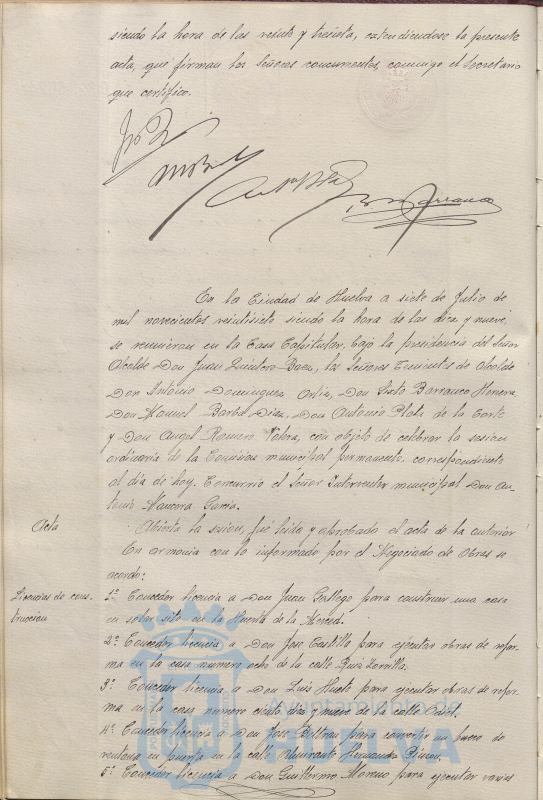 siendo la hora de las veinte y treinta, extendiendose la presente
acta, que firman los Señores concurrentes, conmigo el Secretario
que certifico.
En la Ciudad de Huelva a siete de Julio de
mil novecientos veintisiete siendo la hora de las diez y nueve,
se reunieron en la Casa Capitular, bajo la presidencia del Señor
Alcalde Don Juan Quintero Baez, los Señores Tenientes de Alcalde
Don Antonio Dominguez Ortiz, Don Sixto Barranco Herrera
Don Manuel Barba Diaz, Don Antonio Plata de la Corte
y Don Angel Romero Valera, con objeto de celebrar la sesion
ordinaria de la Comision municipal permanente correspondiente
al dia de hoy. Concurrio el Señor Interventor municipal Don An-
tonio Garcia.
Acta
Abierta la sesion, fué leido y aprobado el acta de la anterior
En armonia con lo informado por el Negociado de Obras se
acordo:
Licencias de cons-
truccion
1º Conceder licencia a Don Juan Gallego para construir una casa
en solar sito en la Huerta de la Merced.
2º Conceder licencia a Don Jose Castillo para ejecutar obras de refor-
ma en la casa numero ocho de la calle Ruiz Zorrilla.
3º Conceder licencia a Don Luis para ejecutar obras de refor-
ma en la casa numero ciento diez y nueve de la calle
4º Conceder licencia a Don Jose Beltran para convertir un hueco de
ventana en puerta en la calle Almirante Hernandez Pinzon.
5º Conceder licencia a Don Guillermo Moreno para ejecutar varias